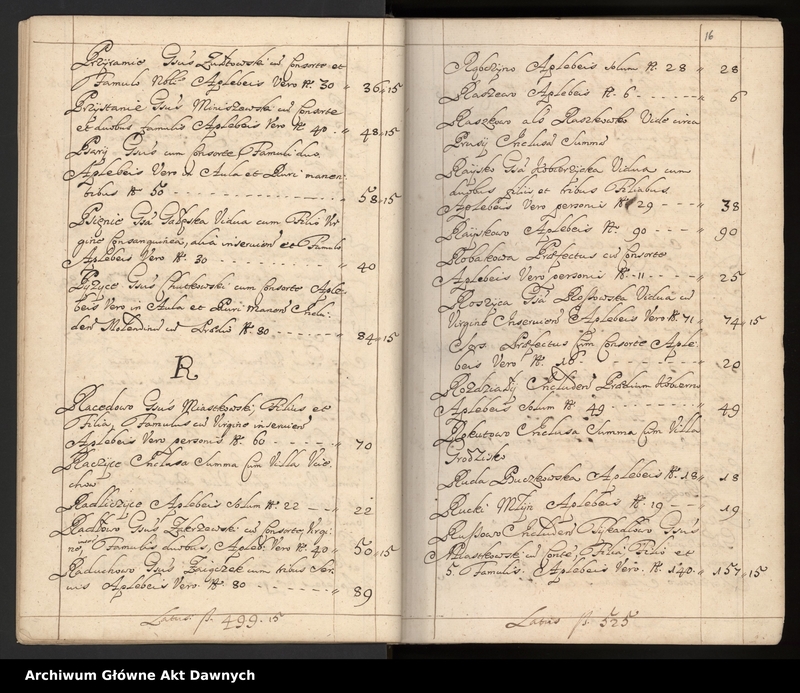 Przyranie Gsus Zuchowski cu Consorte et
Famulo Nobli Aplebeis Vero N. 30 " 36 " 15
Przystanie Gsus Miniszewski cu Consorte
et duobus famulis Aplebeis Vero N. 40 - " 48 " 15
Psary Gsus cum Consorte Famuli duo
Aplebeis Vero in Aula et Ruri manen:
tibus N. 50 " 58 " 15
Vidua cum Filio Vir
gine Consanguinea, alia inservien et Famulo
Aplebeis Vero N. 30 " 40
Pyzyce Gsus Chutkowski cum Consorte Aple:
beis Vero in Aula et Ruri Manen Inclu:
den Molendinu cu Prædiis N. 80 " 84 " 15
R
Racedowo Gsus Miastkowski, Filius et
Filia, Famulus cu Virgine inservien
Aplebeis Vero personis N. 60 " 70
Raczyce Inclusa Summa Cum Villa
chow
Radliczyce Aplebeis Solum N. 22 - " 22
Gsus Zakrzewski cu Consorte, Virgi:
ne, Famulis duobus, Apleb: Vero N. 40 " 50 " 15
Raduchowo Gsus Zaiączek cum tribus Ser:
vis Aplebeis Vero N. 80 " 89
Latus fl. 499. 15
16
Aplebeis Solum N. 28 " 28
Raszewo Aplebeis N. 6 " 6
Raszkowo als Raszkowko Vide circa
Prusy Inclusa Summa
Raysko Gsa Vidua cum
duobus filiis et tribus Filiabus
Aplebeis Vero personis N. 29 " 38
Rayskowo Aplebeis N. 90 " 90
Robakowa Præfectus cu Consorte
Aplebeis Vero personis N. 11 " 25
Roszyca Gsa Vidua cu
Virgine Inservien Aplebeis Vero N. 71 " 74 " 15
Præfectus Cum Consorte Aple
beis Vero N. 18 " 20
Rozdzialy Includen Prædium
Aplebeis Solum N. 49 " 49
Rokutowo Inclusa Summa Cum Villa
Grodzisko
Ruda Buczkowska Aplebeis N. 18 " 18
Rucki Młyn Aplebeis N. 19 " 19
Russowo Includen Tykadlowo Gsus
Miastkowski cu Conte, Filia, Filio et
5. Famulis. Aplebeis Vero N. 140 " 157 " 15
Latus fl. 525
Archiwum Główne Akt Dawnych